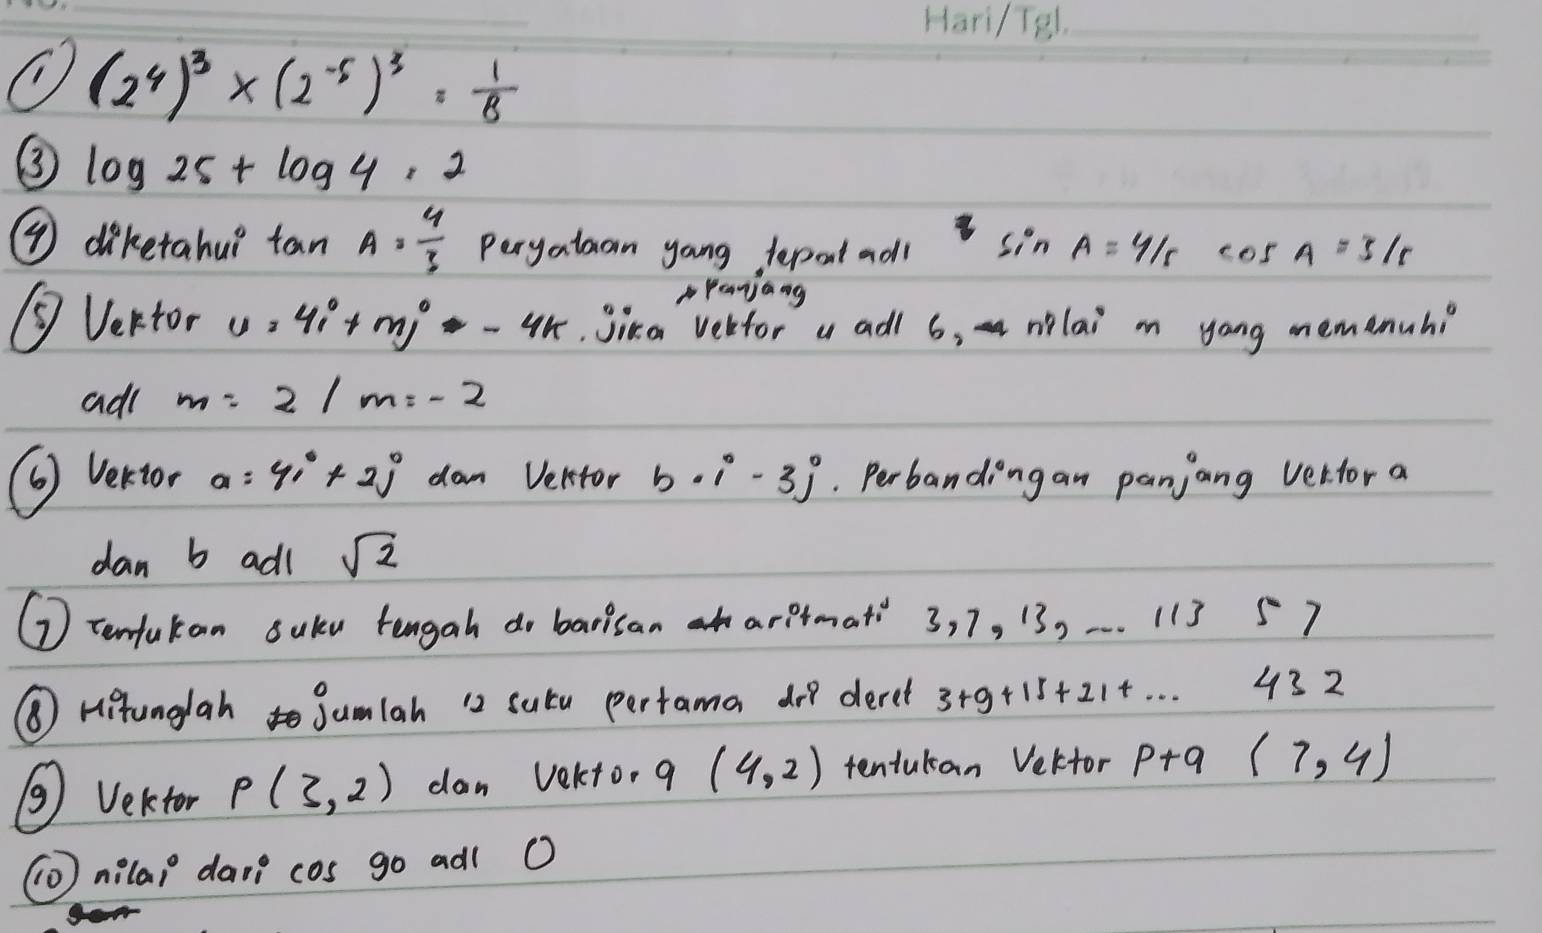 No.
Hari/Tgl.
① (2⁴)³ × (2⁻⁵)³ = 1/8
③ log 25 + log 4 = 2
④ diketahui tan A = 4/3 peryataan yang tepat adl sin A = 4/5 cos A = 3/5
⑤ Vektor u = 4i + mj - 4k. jika panjang vektor u adl 6, nilai m yang memenuhi
adl m = 2 / m = -2
⑥ Vektor a = 4i + 2j dan Vektor b = i - 3j. Perbandingan panjang vektor a
dan b adl √2
⑦ Tentukan suku tengah dr barisan aritmati 3, 7, 13, ... 113 57
⑧ Hitunglah jumlah 12 suku pertama dri deret 3+9+15+21+... 432
⑨ Vektor P (3,2) dan Vektor q (4,2) tentukan Vektor P+q (7,4)
⑩ nilai dari cos 90 adl 0